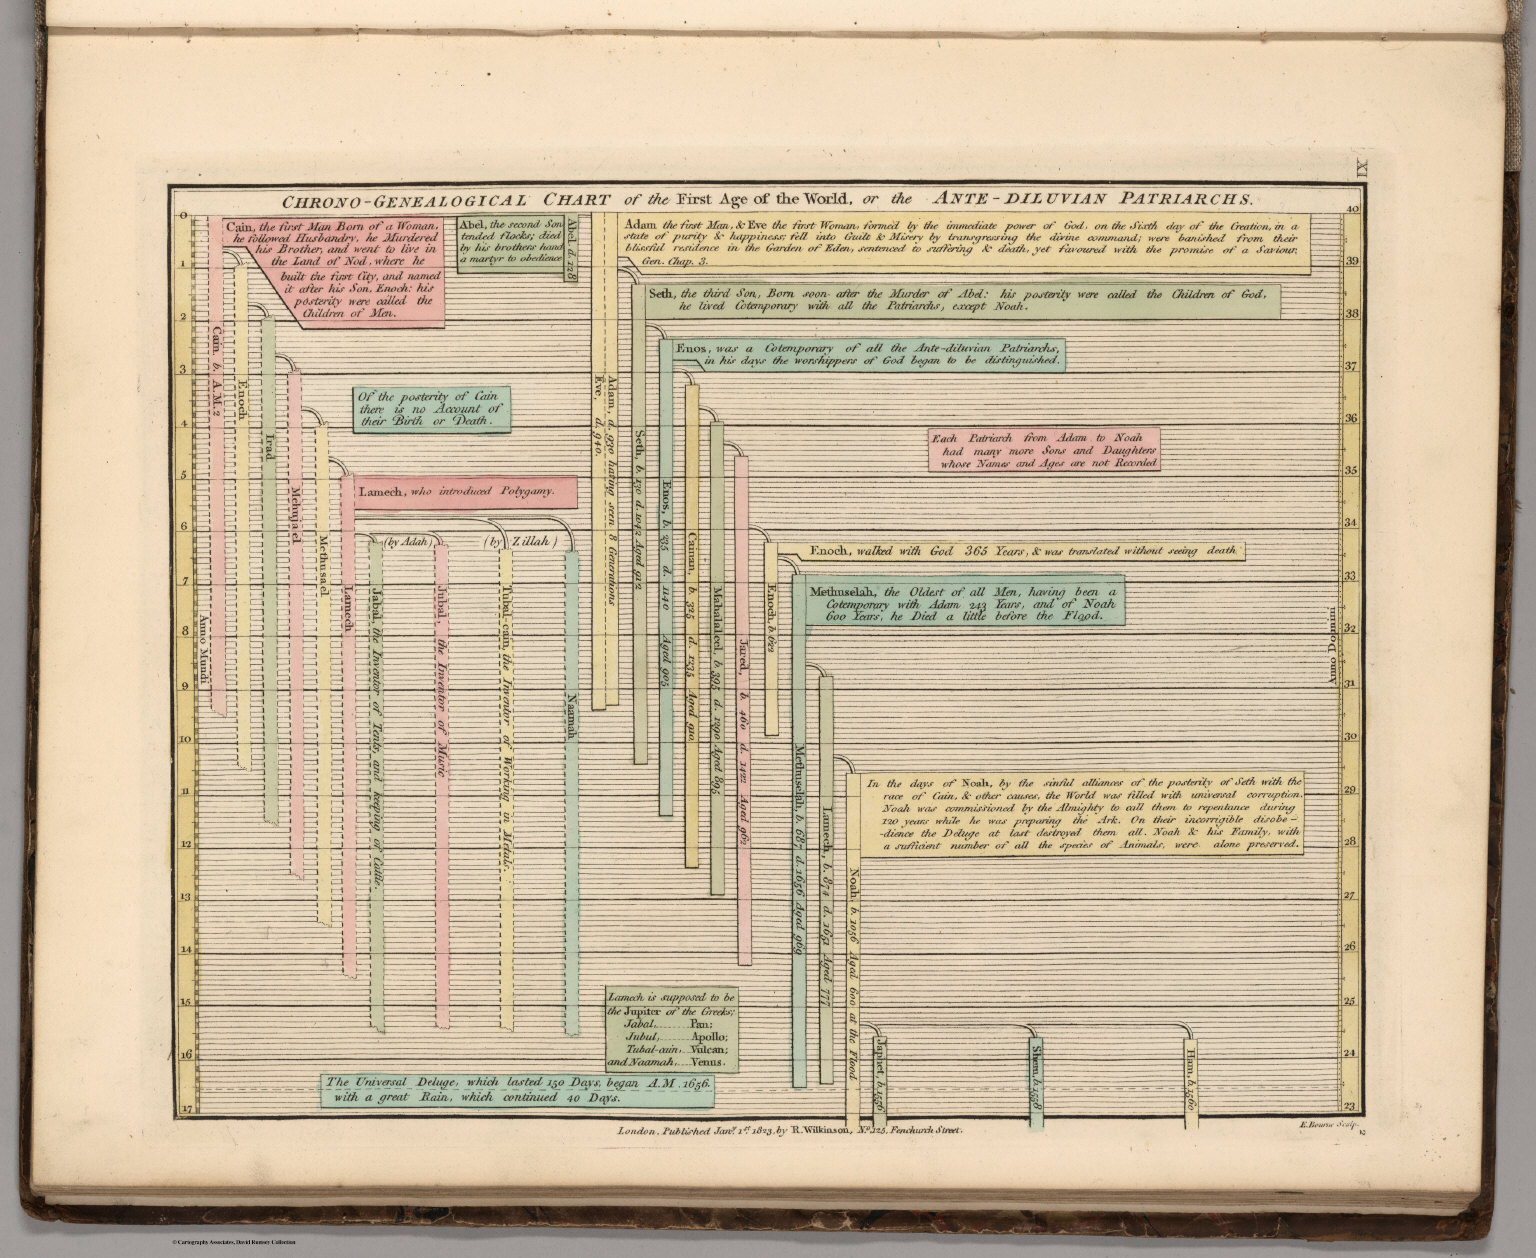 XI
CHRONO-GENEALOGICAL CHART of the First Age of the World, or the ANTE-DILUVIAN PATRIARCHS.
0
1
2
3
4
5
6
7
8
9
10
11
12
13
14
15
16
17
Anno Mundi
Cain, the first Man Born of a Woman,
he followed Husbandry, he Murdered
his Brother, and went to live in
the Land of Nod, where he
built the first City, and named
it after his Son, Enoch: his
posterity were called the
Children of Men.
Abel, the second Son
tended flocks; died
by his brothers hand
a martyr to obedience
Abel d. 128
Adam the first Man, & Eve the first Woman, formed by the immediate power of God, on the Sixth day of the Creation, in a
state of purity & happiness; fell into Guilt & Misery by transgressing the divine command; were banished from their
blissful residence in the Garden of Eden, sentenced to suffering & death, yet favoured with the promise of a Saviour.
Gen. Chap. 3.
Seth, the third Son, Born soon after the Murder of Abel: his posterity were called the Children of God,
he lived Cotemporary with all the Patriarchs, except Noah.
Enos, was a Cotemporary of all the Ante-diluvian Patriarchs,
in his days the worshippers of God began to be distinguished.
Of the posterity of Cain
there is no Account of
their Birth or Death.
Each Patriarch from Adam to Noah
had many more Sons and Daughters
whose Names and Ages are not Recorded
Lamech, who introduced Polygamy.
(by Adah)
(by Zillah)
Enoch, walked with God 365 Years, & was translated without seeing death
Methuselah, the Oldest of all Men, having been a
Cotemporary with Adam 243 Years, and of Noah
600 Years, he Died a little before the Flood.
Cain, b. A.M. 2
Enoch
Irad
Mehujael
Methusael
Lamech
Jabal, the Inventor of Tents, and keeping of Cattle.
Jubal, the Inventor of Music
Tubal-cain, the Inventor of Working in Metals.
Naamah
Eve, d. 940.
Adam, d. 930 having seen 8 Generations
Seth, b. 130 d. 1042 Aged 912
Enos, b. 235 d. 1140 Aged 905
Cainan, b. 325 d. 1235 Aged 910
Mahalaleel, b. 395 d. 1290 Aged 895
Jared, b. 460 d. 1422 Aged 962
Enoch, b. 622
Methuselah, b. 687 d. 1656 Aged 969
Lamech, b. 874 d. 1651 Aged 777
Noah, b. 1056 Aged 600 at the Flood
In the days of Noah, by the sinful alliances of the posterity of Seth with the
race of Cain, & other causes, the World was filled with universal corruption.
Noah was commissioned by the Almighty to call them to repentance during
120 years while he was preparing the Ark. On their incorrigible disobe-
-dience the Deluge at last destroyed them all, Noah & his Family, with
a sufficient number of all the species of Animals, were alone preserved.
Lamech is supposed to be
the Jupiter of the Greeks;
Jabal,........Pan;
Jubal,........Apollo;
Tubal-cain,..Vulcan;
and Naamah,....Venus.
Japhet, b. 1556
Shem, b. 1558
Ham, b. 1560
The Universal Deluge, which lasted 150 Days, began A.M. 1656.
with a great Rain, which continued 40 Days.
40
39
38
37
36
35
34
33
32
31
30
29
28
27
26
25
24
23
Anno Domini
London, Published Jany. 1st. 1823, by R. Wilkinson, No. 125, Fenchurch Street.
E. Bourne Sculp.
© Cartography Associates, David Rumsey Collection